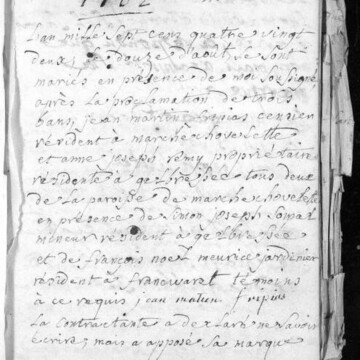 1782
L'an mille sept cens quatre vingt
deux, le douze d'aout se sont
mariés en presence de moi soussigné
après la proclamation de trois
bans, jean martin censier
résident à marche hovelette
et anne joseph remy propriétaire
résidente à gelbressée tous deux
de la paroisse de marche hovelette
en présence de simon joseph
mineur résident à gelbressée
et de françois noel meurice jardinier
résident à francwaret témoins
à ce requis jean
la contractante a déclaré ne savoir
écrire, mais a apposé sa marque